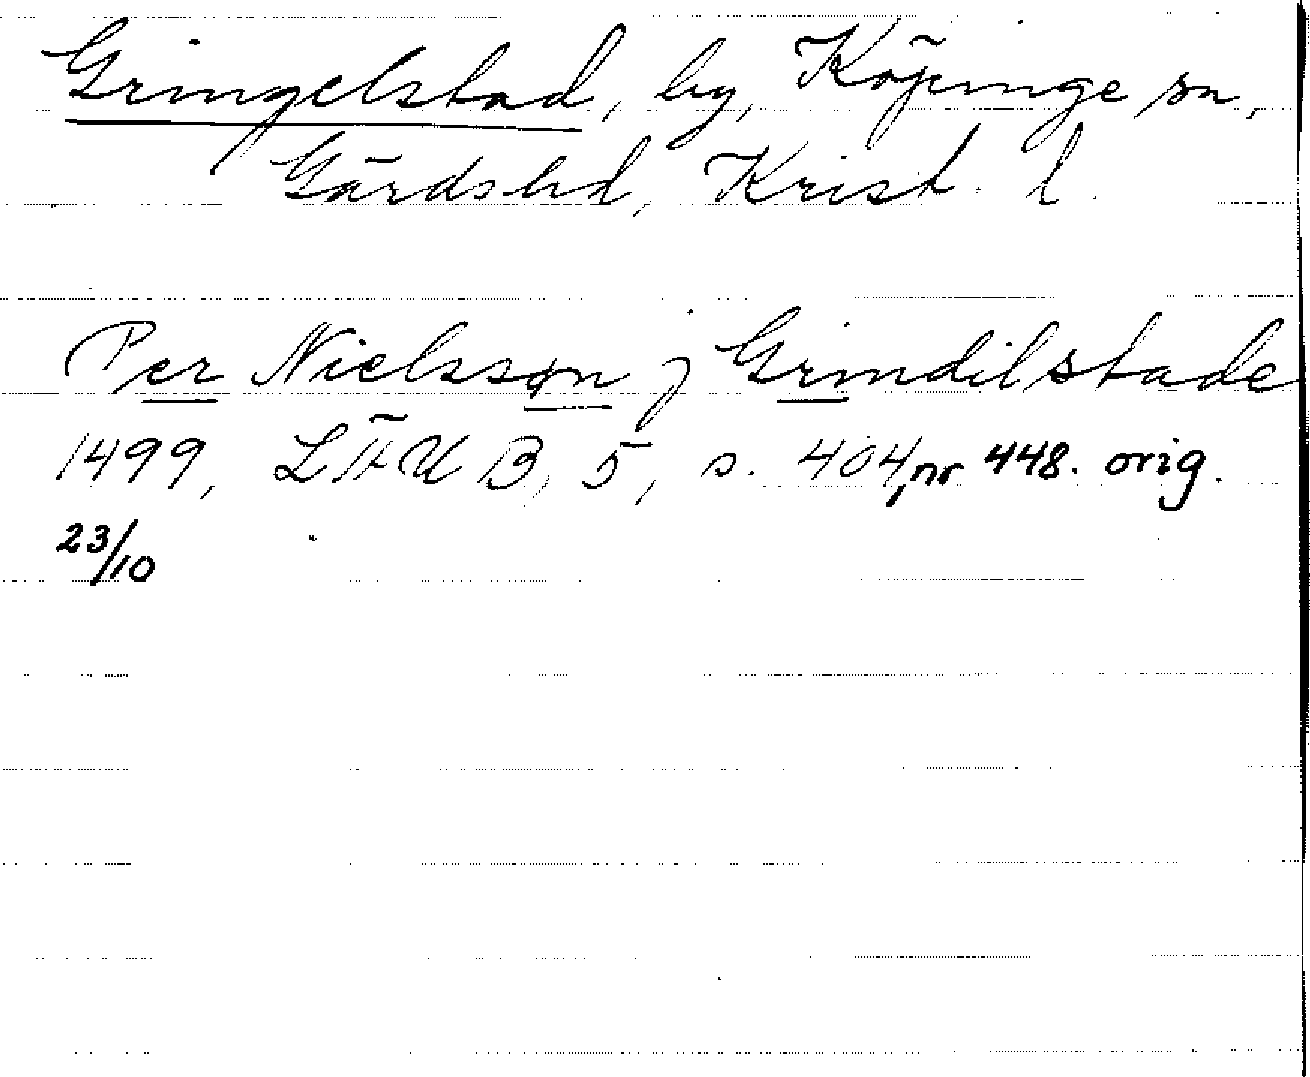 Gringelstad, by, Köpinge sn,
Gärds hd, Krist. l.
Per Nielsszøn j Grindilstade
1499, LÄU B, 5, s. 404, nr 448. orig.
23/10